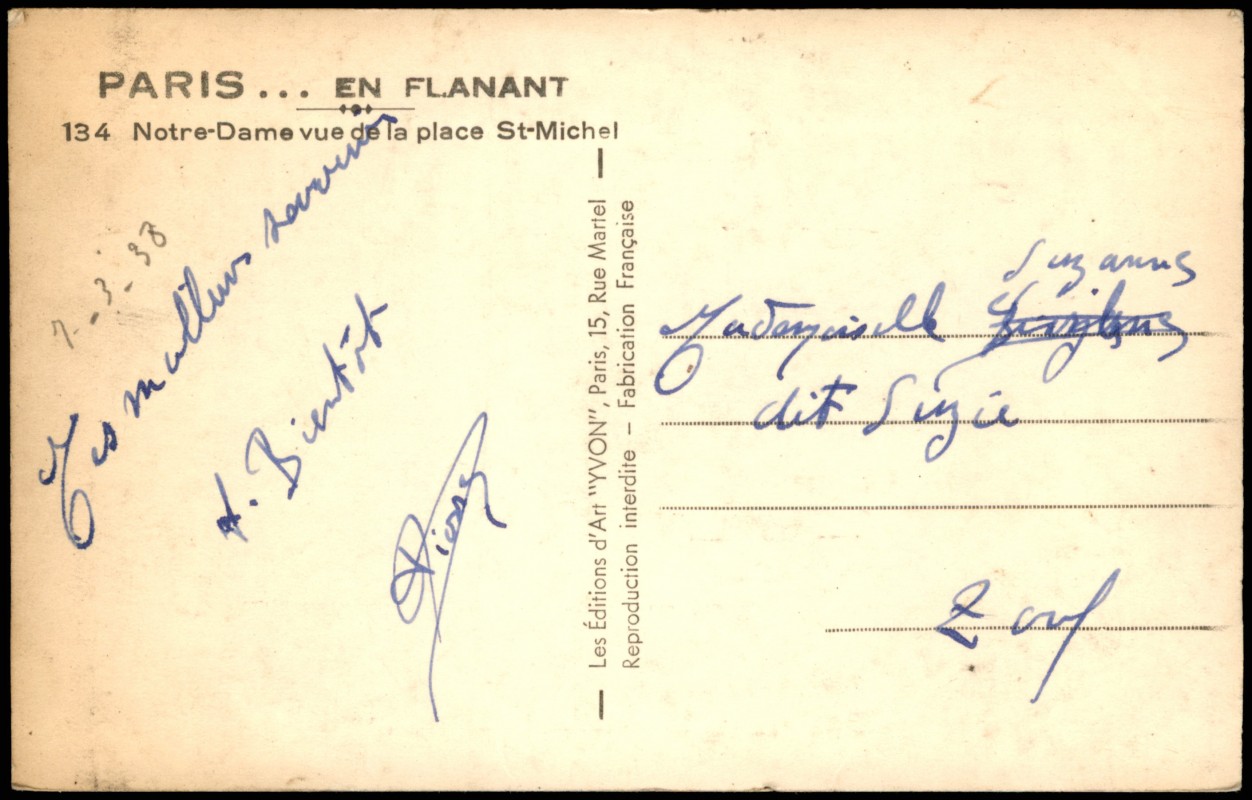 PARIS... EN FLANANT
134 Notre-Dame vue de la place St-Michel
7-3-38
Mes meilleurs souvenirs
A. Bientôt
Pierre
Les Éditions d'Art "YVON", Paris, 15, Rue Martel
Reproduction interdite – Fabrication Française
Suzanne
Mademoiselle
dit Suzie
Zouf